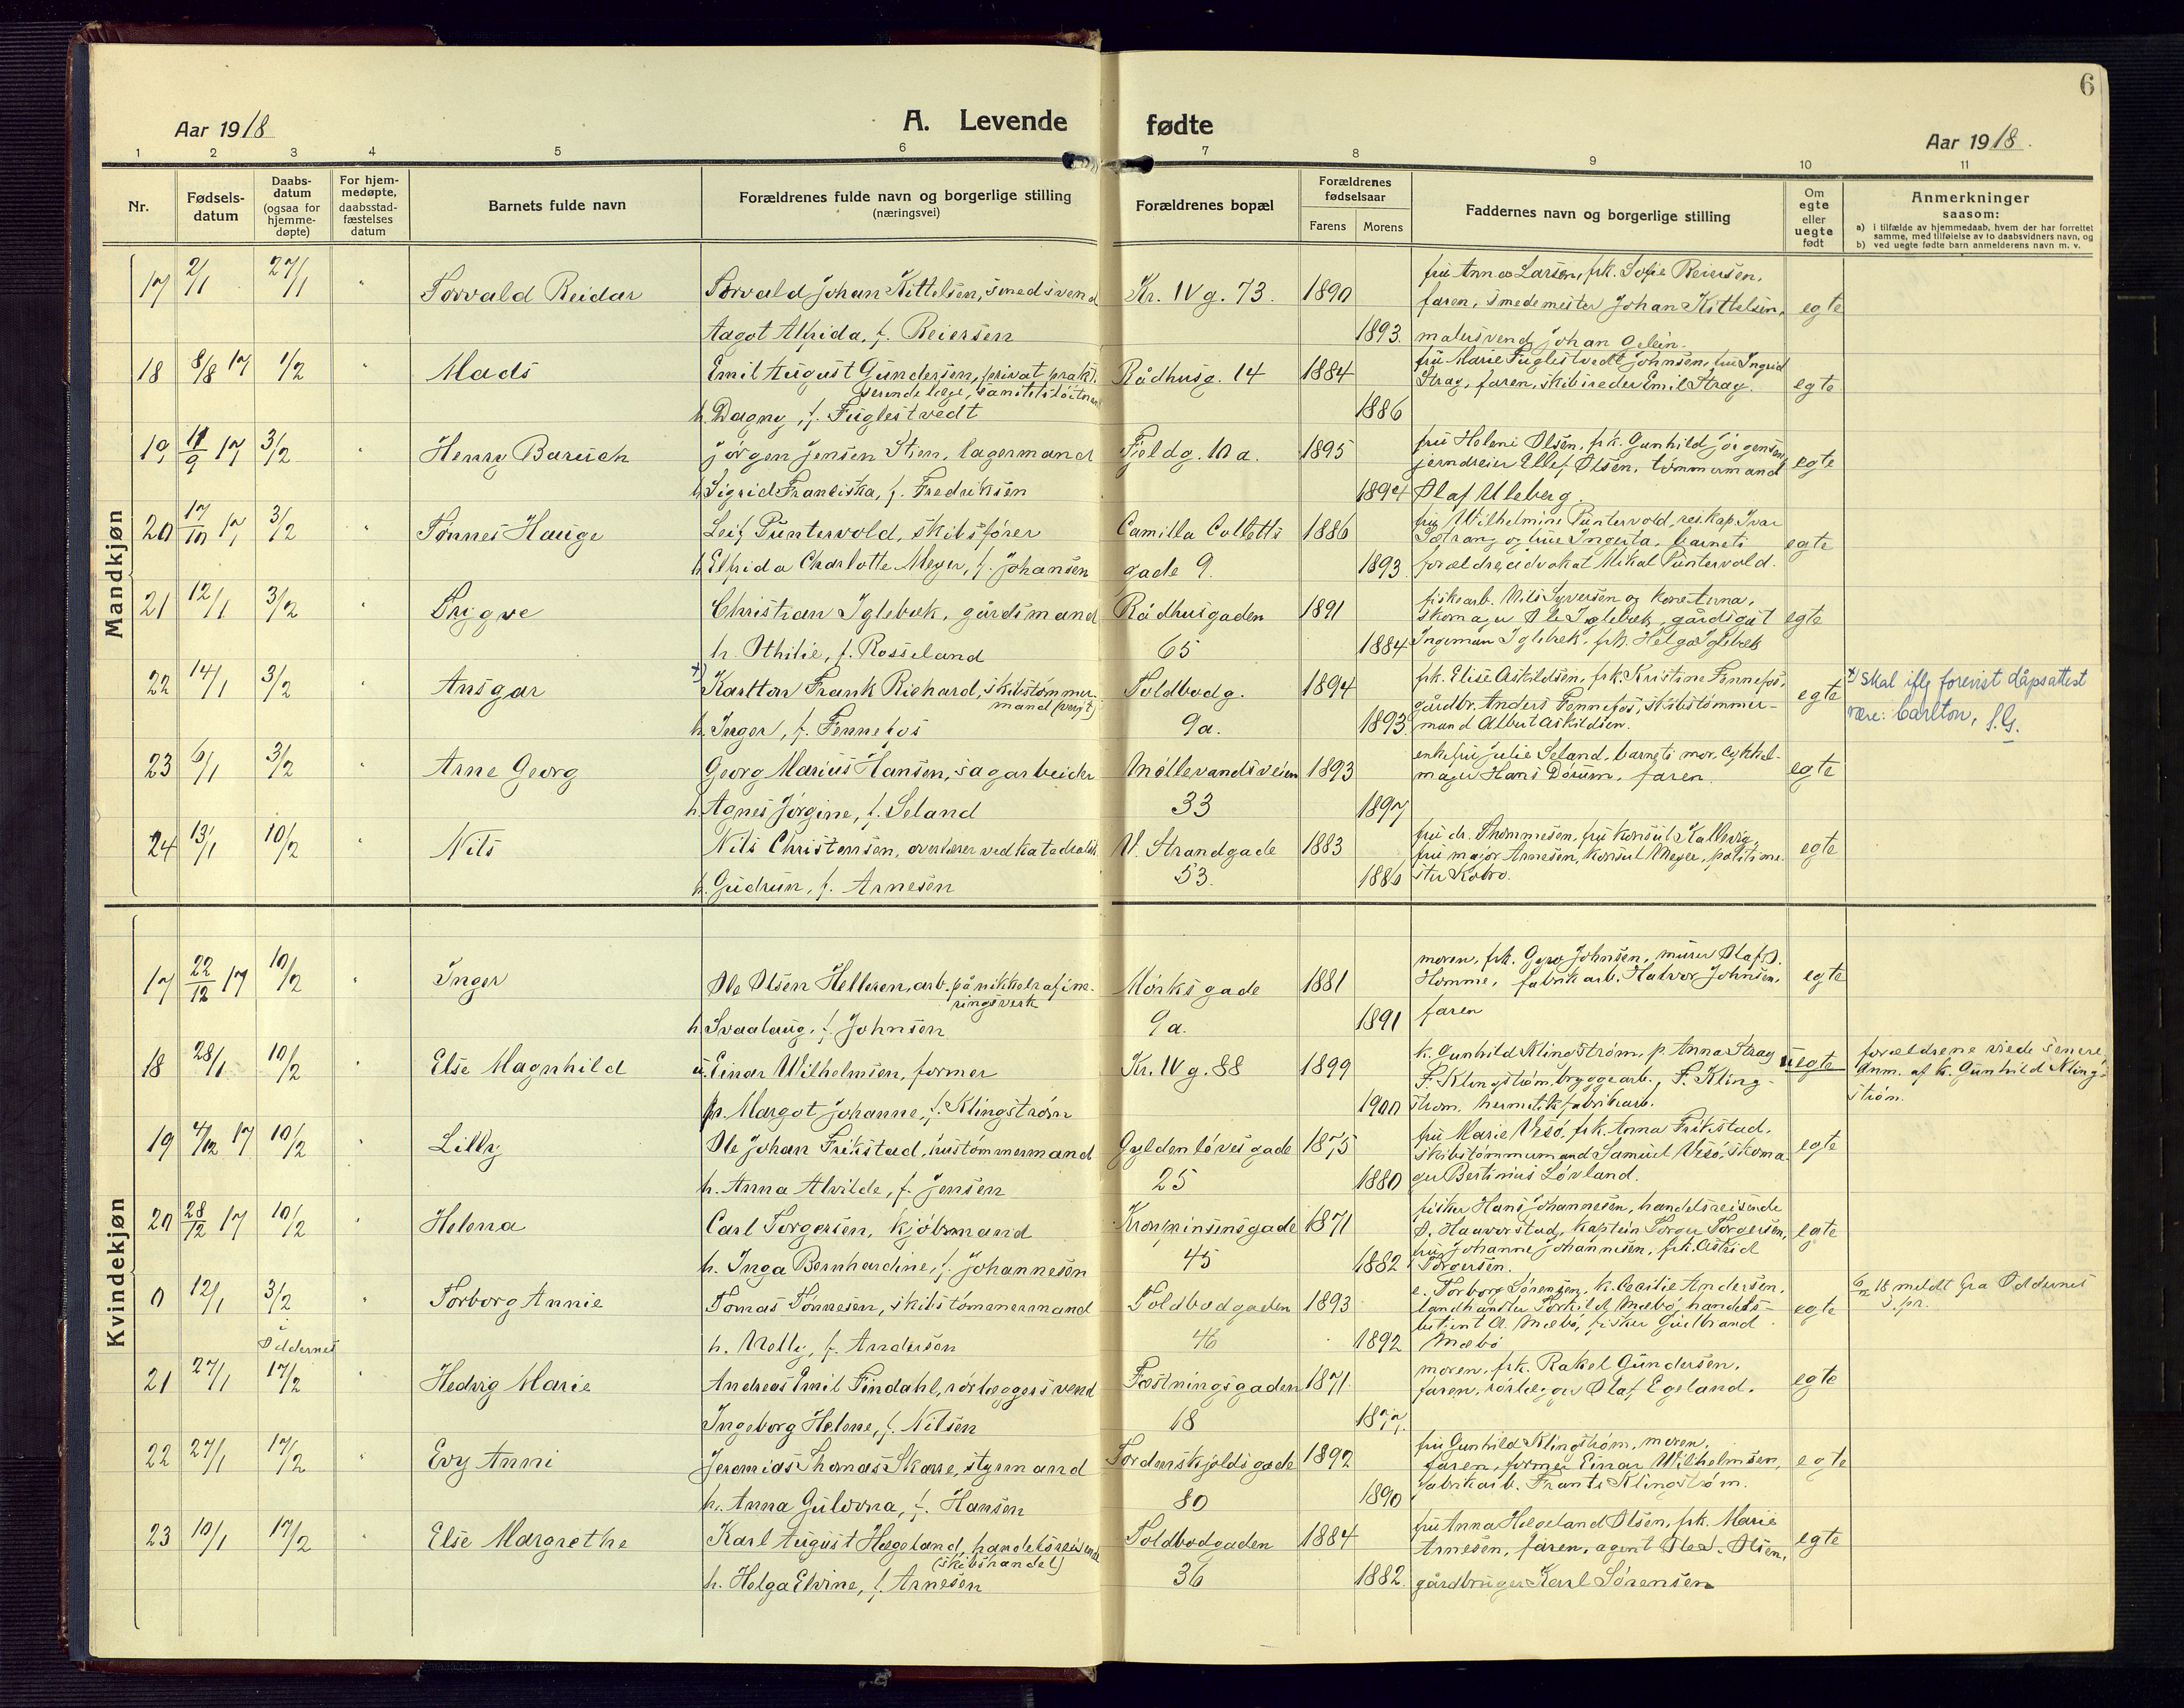 6
Aar 1918
A. Levende fødte
Aar 1918.
1 2 3 4 5 6 7 8 9 10 11
Nr.
Fødsels-datum
Daabs-datum (ogsaa for hjemme-døpte)
For hjem-medøpte, daabsstad-fæstelses datum
Barnets fulde navn
Forældrenes fulde navn og borgerlige stilling (næringsvei)
Forældrenes bopæl
Forældrenes fødselsaar
Farens Morens
Faddernes navn og borgerlige stilling
Om egte eller uegte født
Anmerkninger saasom:
a) i tilfælde av hjemmedaab, hvem der har forrettet samme, med tilføielse av to daabsvidners navn, og
b) ved uegte fødte barn anmelderens navn m. v.
Mandkjøn
17 2/1 27/1 " Torvald Reidar Torvald Johan Kittelsen, smedsvend Kr. IV g. 73. 1890 fru Anna Larsen, frk. Sofie Reiersen,
faren, smedemester Johan Kittelsen, egte
Aagot Alfrida, f. Reiersen 1893. malersvend Johan Gelein.
18 8/8 17 1/2 " Mads Emil August Gundersen, privat prakt. Rådhusg. 14 1884 fru Marie Fuglestvedt Johnsen, fru Ingrid
serende læge, sanitetsløitnant Strag, faren, skibsreder Emil Strag. egte
h. Dagny, f. Fuglestvedt 1886
19 11/9 17 3/2 Henry Baruch Jørgen Jensen Stien, lagermand Fjeldg. 10 a. 1895 fru Heleni Olsen, frk. Gunhild Jørgensen,
jerndreier Ellef Olsen, tømmermand egte
h. Sigrid Franciska, f. Fredriksen 1894 Olaf Uleberg.
20 17/10 17 3/2 " Tønnes Hauge Leif Puntervold, skibsfører Camilla Colletts 1886 fru Wilhelmine Puntervold, res.kap. Ivar
Sætrang og frue Ingerta, barnets egte
h. Elfrida Charlotte Meyer, f. Johansen gade 9. 1893. forældre, advokat Mikal Puntervold.
21 12/1 3/2 " Trygve Christian Iglebæk, gårdsmand Rådhusgaden 1891 fiskearb. Nils Syversen og kone Anna,
skomager Ole Iglebæk, gårdsgut egte
h. Othilie, f. Rosseland 65 1884 Ingeman Iglebæk, frk. Helga Iglebæk
22 14/1 3/2 " Ansgar +) Karlton Frank Richard, skibstømmer- Toldbodg. 1894 frk. Elise Askildsen, frk. Kristine Fennefos,
mand (verft) gårdbr. Anders Fennefos, skibstømmer- egte +) skal iflg forevist dåpsattest
h. Inger, f. Fennefos 9a. 1893 mand Albert Askildsen. være: Carlton, S.G.
23 6/1 3/2 Arne Georg Georg Marius Hansen, sagarbeider Møllevandsveien 1893 enkefru Julie Seland, barnets mor, cykkel-
mager Hans Dørum, faren. egte
h. Agnes Jørgine, f. Seland 33 1897
24 13/1 10/2 " Nils Nils Christensen, overlærer ved katedralsk. V. Strandgade 1883 fru dr. Thommesen, fru konsul Kallevig,
fru major Arnesen, konsul Meyer, politime- egte
h. Gudrun, f. Arnesen 53. 1886 ster Kobro.
Kvindekjøn
17 22/12 17 10/2 " Inger Ole Olsen Helleren, arb. på nikkelrafine- Mørksgade 1881 moren, frk. Gyro Johnsen, murer Olaf O.
ringsverk Homme, fabrikarb. Halvor Johnsen, egte
h. Svaalaug, f. Johnsen 9a. 1891 faren
18 28/1 10/2 " Else Magnhild u. Einar Wilhelmsen, former Kr. IV g. 88 1899 k. Gunhild Klingstrøm, p. Anna Strag uegte forældrene viede senere,
F. Klingstrøm, bryggearb., F. Kling- Anm. af k. Gunhild Kling-
p. Margot Johanne, f. Klingstrøm 1900 strøm, hermetikfabrikarb. strøm.
19 4/12 17 10/2 " Lilly Ole Johan Frikstad, hustømmermand Gyldenløvesgade 1875 fru Marie Vesø, frk. Anna Frikstad,
skibstømmermand Samuel Vesø, skoma- egte
h. Anna Alvilde, f. Jensen 25 1880 ger Bertinius Løvland.
20 28/12 17 10/2 " Helena Carl Torgersen, kjøbmand Kronprinsensgade 1871 fisker Hans Johannesen, handelsreisende
O. Haaverstad, kaptein Torger Torgersen, egte
h. Inga Bernhardine, f. Johannesen 45 1882 fru Johanne Johannesen, frk. Astrid
Torgersen.
0 12/1 3/2 i Oddernes " Torborg Annie Tomas Tønnesen, skibstømmermand Toldbodgaden 1893 e. Torborg Sørensen, k. Cecilie Andersen,
landhandler Torkild Mæbø, handels- egte 6/2 18 meldt fra Oddernes s.pr.
betjent A. Mæbø, fisker Gudbrand
h. Nelly, f. Andersen 46 1892 Mæbø
21 27/1 17/2 Hedvig Marie Andreas Emil Findahl, rørlæggersvend Fæstningsgaden 1871 moren, frk. Rakel Gundersen,
faren, rørlægger Olaf Egeland. egte
Ingeborg Helene, f. Nilsen 18 1877.
22 27/1 17/2 " Evy Anni Jeremias Thomas Skarre, styrmand Tordenskjoldsgade 1892 fru Gunhild Klingstrøm, moren,
faren, former Einar Wilhelmsen, egte
h. Anna Gulovna, f. Hansen 80 1890 fabrikarb. Frants Klingstrøm.
23 10/1 17/2 " Else Margrethe Karl August Hægeland, handelsreisende Toldbodgaden 1884 fru Anna Hægeland Olsen, frk. Marie
(skibshandel) Arnesen, faren, agent Oled. Olsen, egte
h. Helga Elvine, f. Arnesen 36 1882. gårdbruger Karl Sørensen